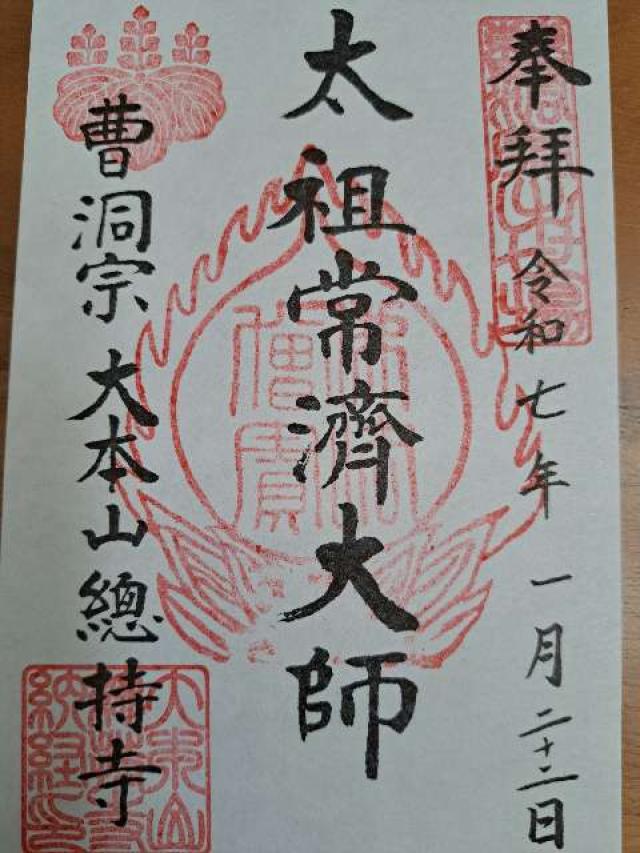 奉拝 令和七年 一月二十二日
太祖常濟大師
曹洞宗 大本山 總持寺